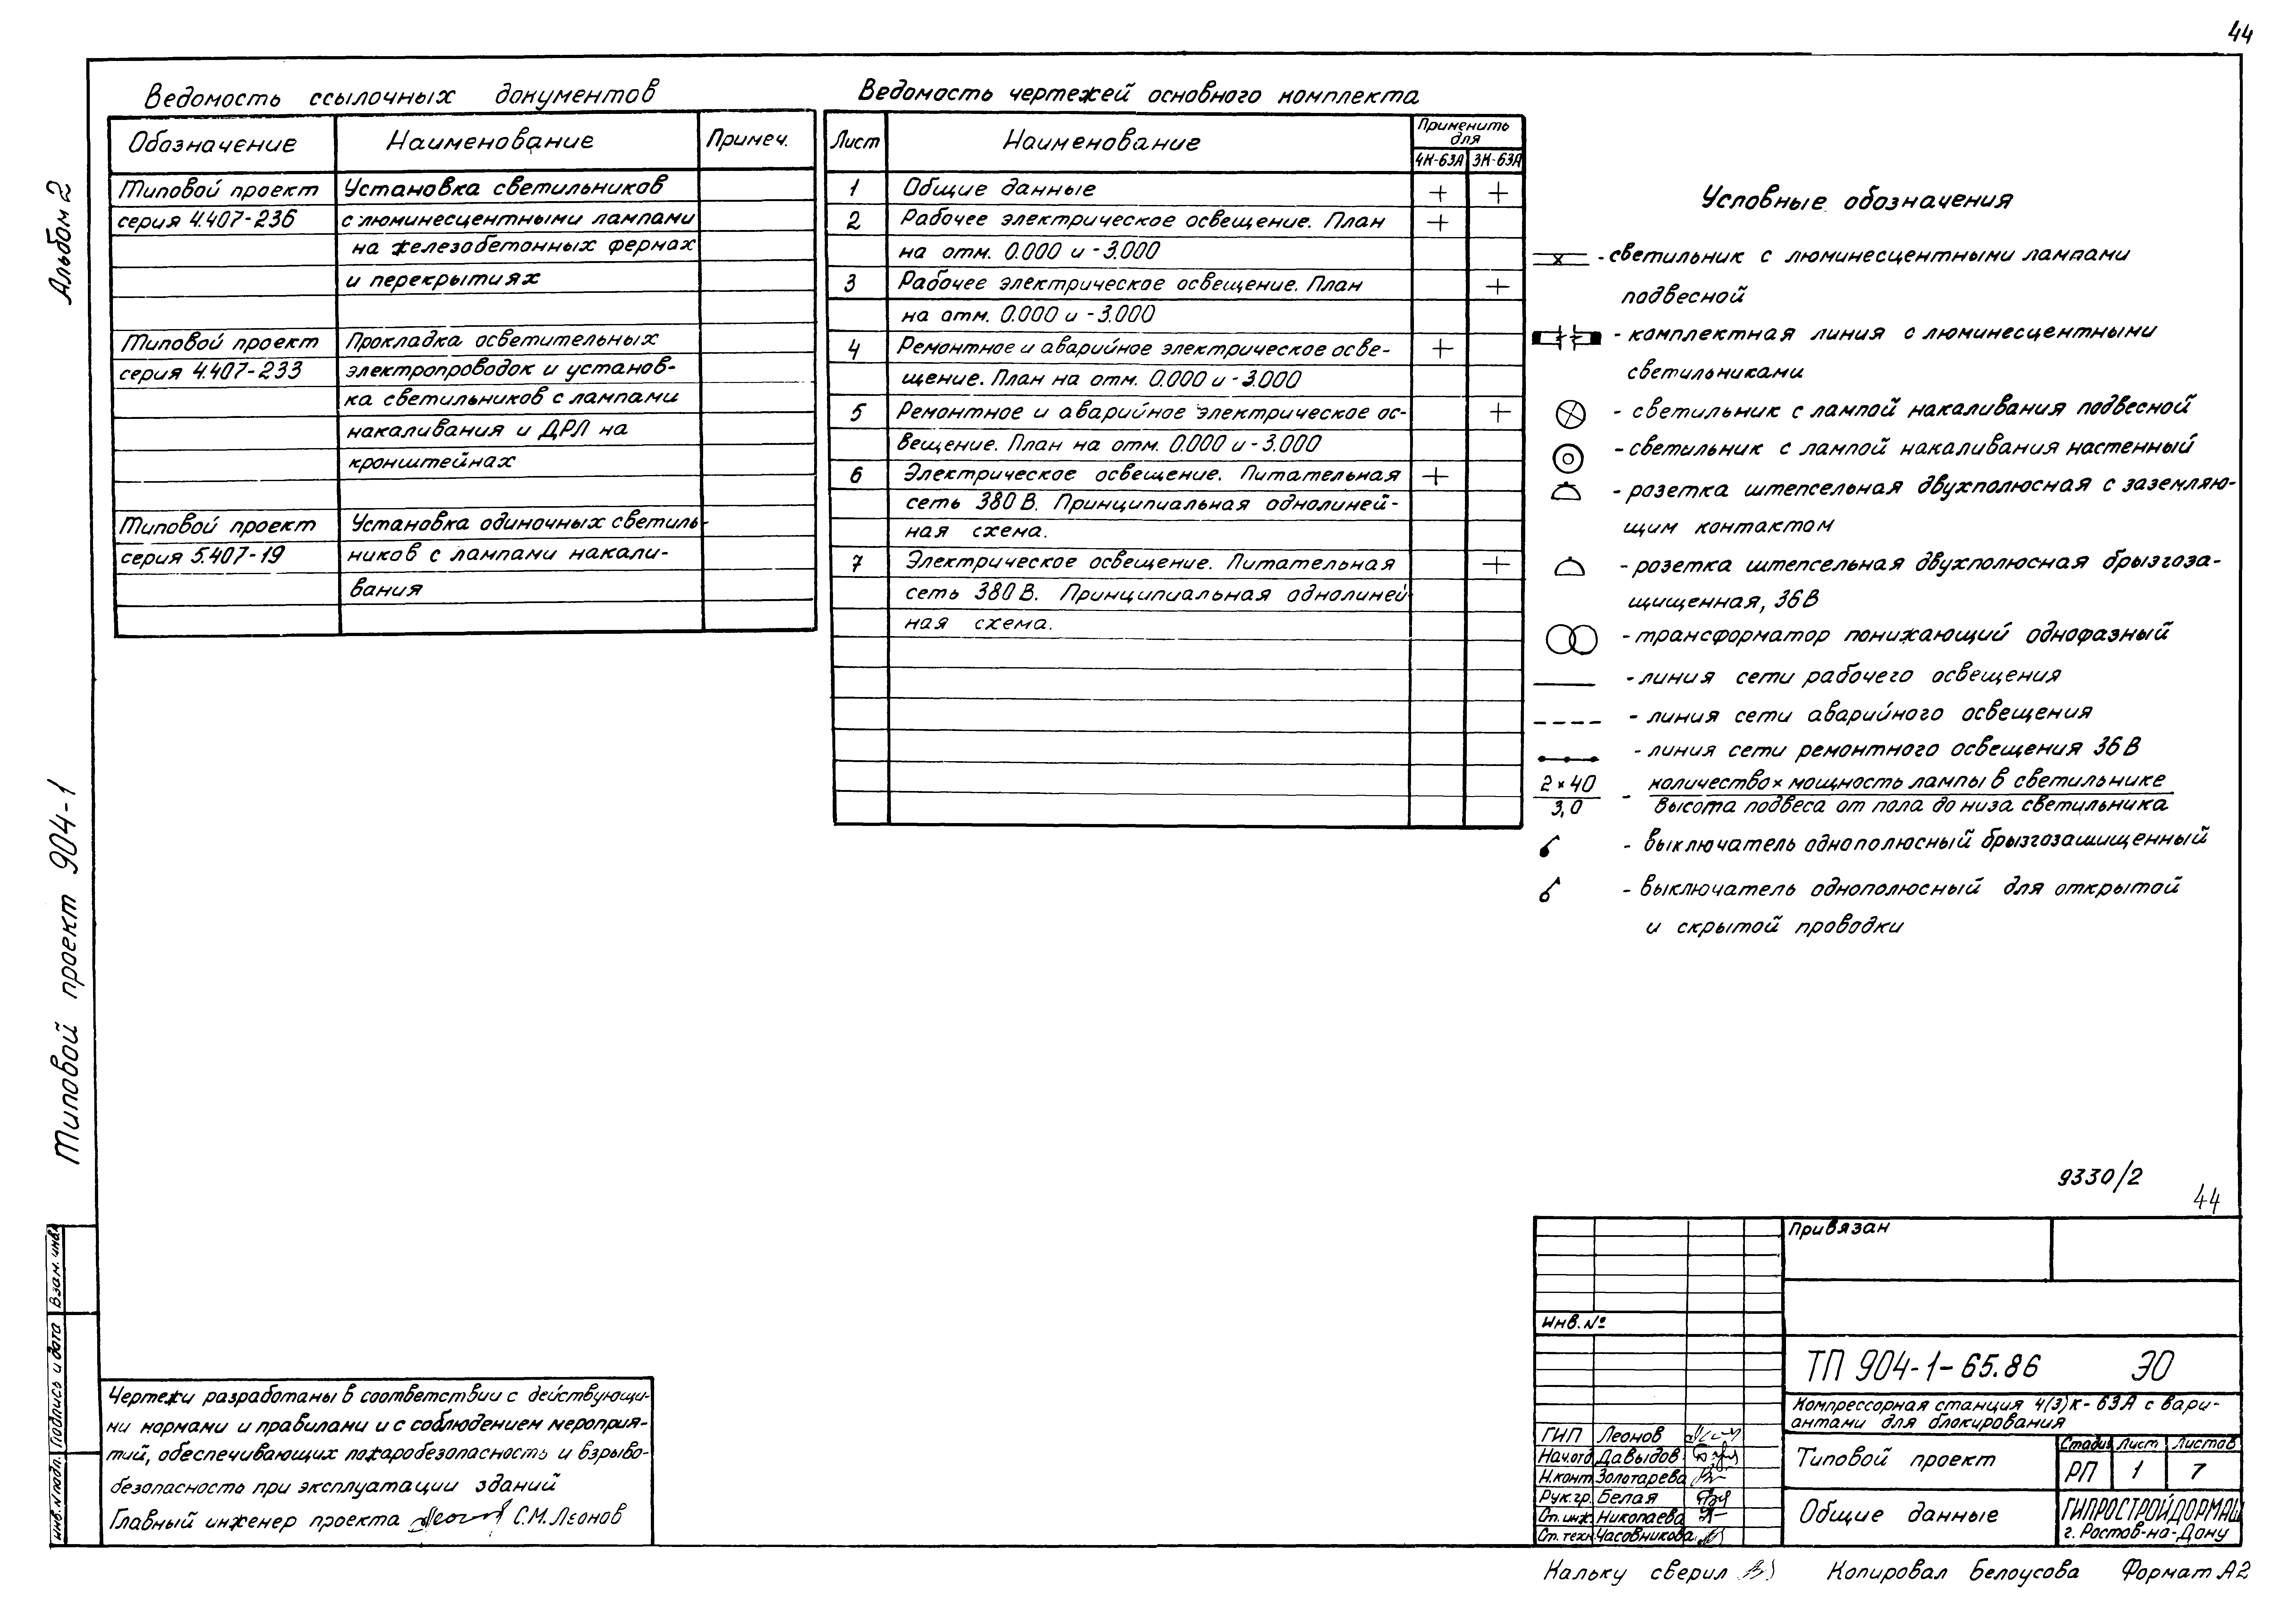 44
Альбом 2
Типовой проект 904-1
Ведомость ссылочных документов
Обозначение Наименование Примеч.
Типовой проект Установка светильников
серия 4.407-236 с люминесцентными лампами
на железобетонных фермах
и перекрытиях
Типовой проект Прокладка осветительных
серия 4.407-233 электропроводок и установ-
ка светильников с лампами
накаливания и ДРЛ на
кронштейнах
Типовой проект Установка одиночных светиль-
серия 5.407-19 ников с лампами накали-
вания
Ведомость чертежей основного комплекта
Лист Наименование Применить
для
4К-63А 3К-63А
1 Общие данные + +
2 Рабочее электрическое освещение. План +
на отм. 0.000 и -3.000
3 Рабочее электрическое освещение. План +
на отм. 0.000 и -3.000
4 Ремонтное и аварийное электрическое осве- +
щение. План на отм. 0.000 и -3.000
5 Ремонтное и аварийное электрическое ос- +
вещение. План на отм. 0.000 и -3.000
6 Электрическое освещение. Питательная +
сеть 380 В. Принципиальная однолиней-
ная схема.
7 Электрическое освещение. Питательная +
сеть 380 В. Принципиальная однолиней
ная схема.
Условные обозначения
- светильник с люминесцентными лампами
подвесной
- комплектная линия с люминесцентными
светильниками
- светильник с лампой накаливания подвесной
- светильник с лампой накаливания настенный
- розетка штепсельная двухполюсная с заземляю-
щим контактом
- розетка штепсельная двухполюсная брызгоза-
щищенная, 36 В
- трансформатор понижающий однофазный
- линия сети рабочего освещения
- линия сети аварийного освещения
- линия сети ремонтного освещения 36 В
2×40 - количество × мощность лампы в светильнике
3,0 высота подвеса от пола до низа светильника
- выключатель однополюсный брызгозащищенный
- выключатель однополюсный для открытой
и скрытой проводки
9330/2
44
Взам. инв.
Подпись и дата
Инв. N подл.
Чертежи разработаны в соответствии с действующи-
ми нормами и правилами и с соблюдением мероприя-
тий, обеспечивающих пожаробезопасность и взрыво-
безопасность при эксплуатации зданий
Главный инженер проекта С.М. Леонов
Привязан
Инв. №
ТП 904-1-65.86 ЭО
Компрессорная станция 4(3)К-63А с вари-
антами для блокирования
ГИП Леонов
Нач.отд Давыдов
Н.конт. Золотарева
Рук.гр. Белая
Ст. инж. Николаева
Ст. техн. Часовникова
Типовой проект
Стадия Лист Листов
РП 1 7
Общие данные
ГИПРОСТРОЙДОРМАШ
г. Ростов-на-Дону
Кальку сверил Копировал Белоусова Формат А2